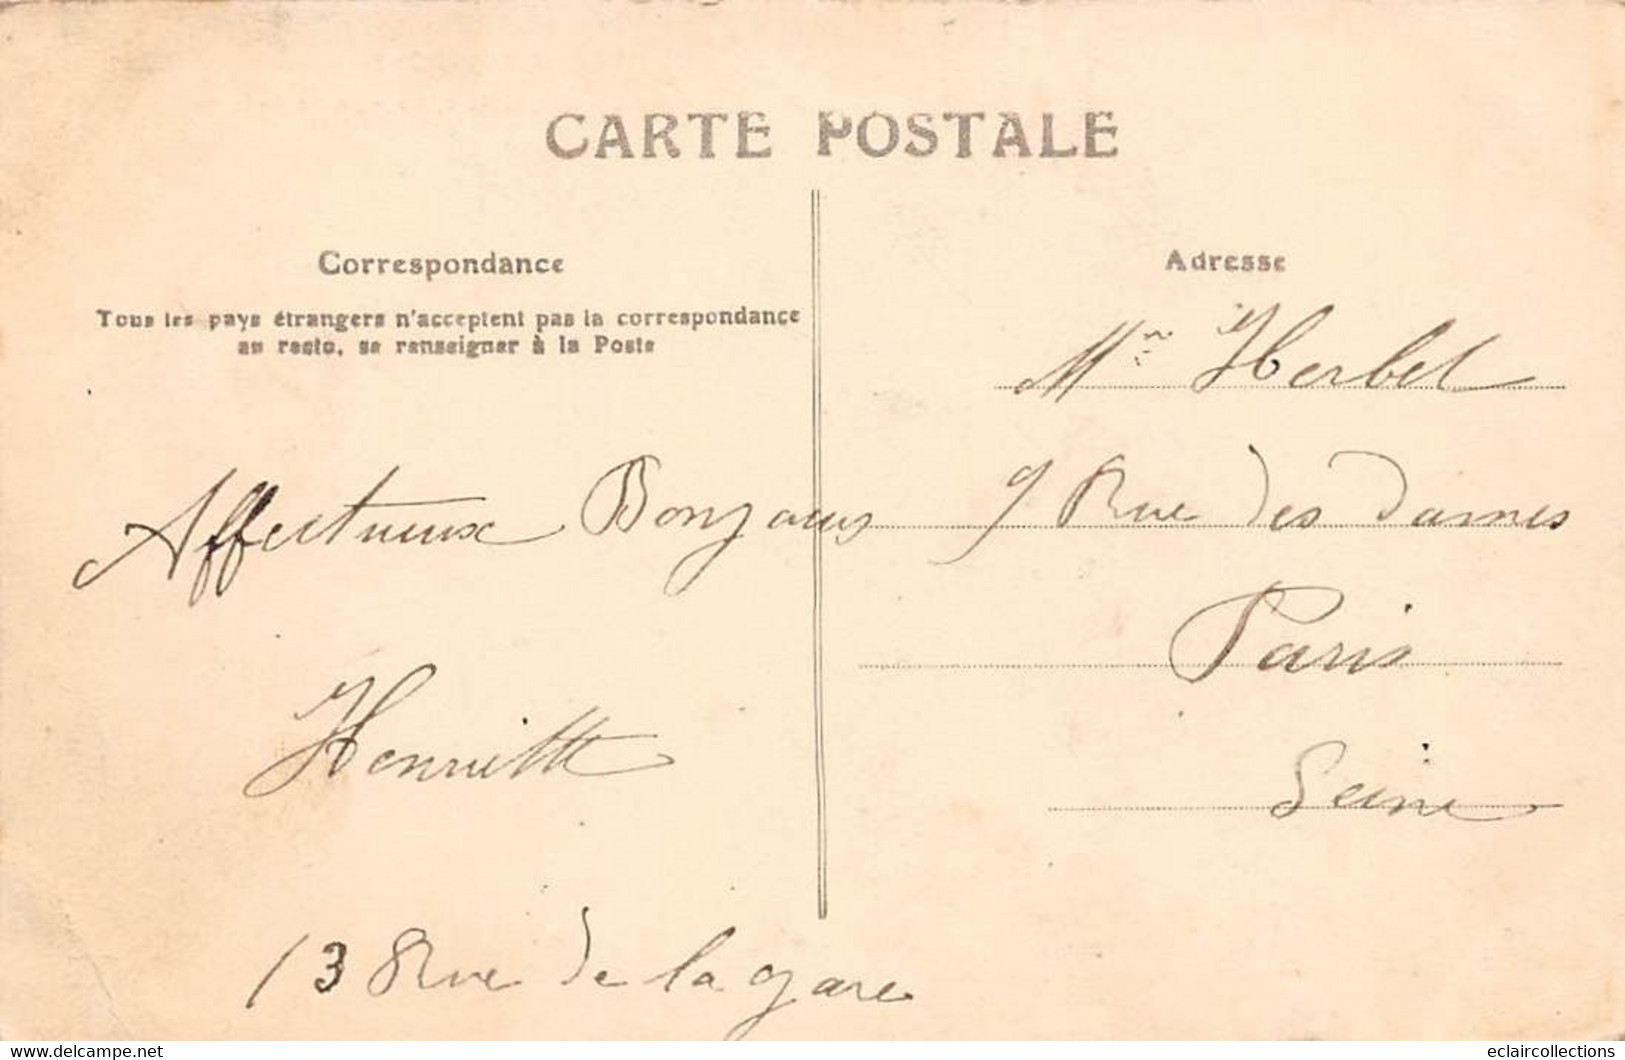 CARTE POSTALE
Correspondance
Tous les pays étrangers n'acceptent pas la correspondance
au recto, se renseigner à la Poste
Affectueux Bonjours
Henriette
13 Rue de la gare
Adresse
Mme Herbel
9 Rue des Dames
Paris
Seine
www.delcampe.net
eclaircollections